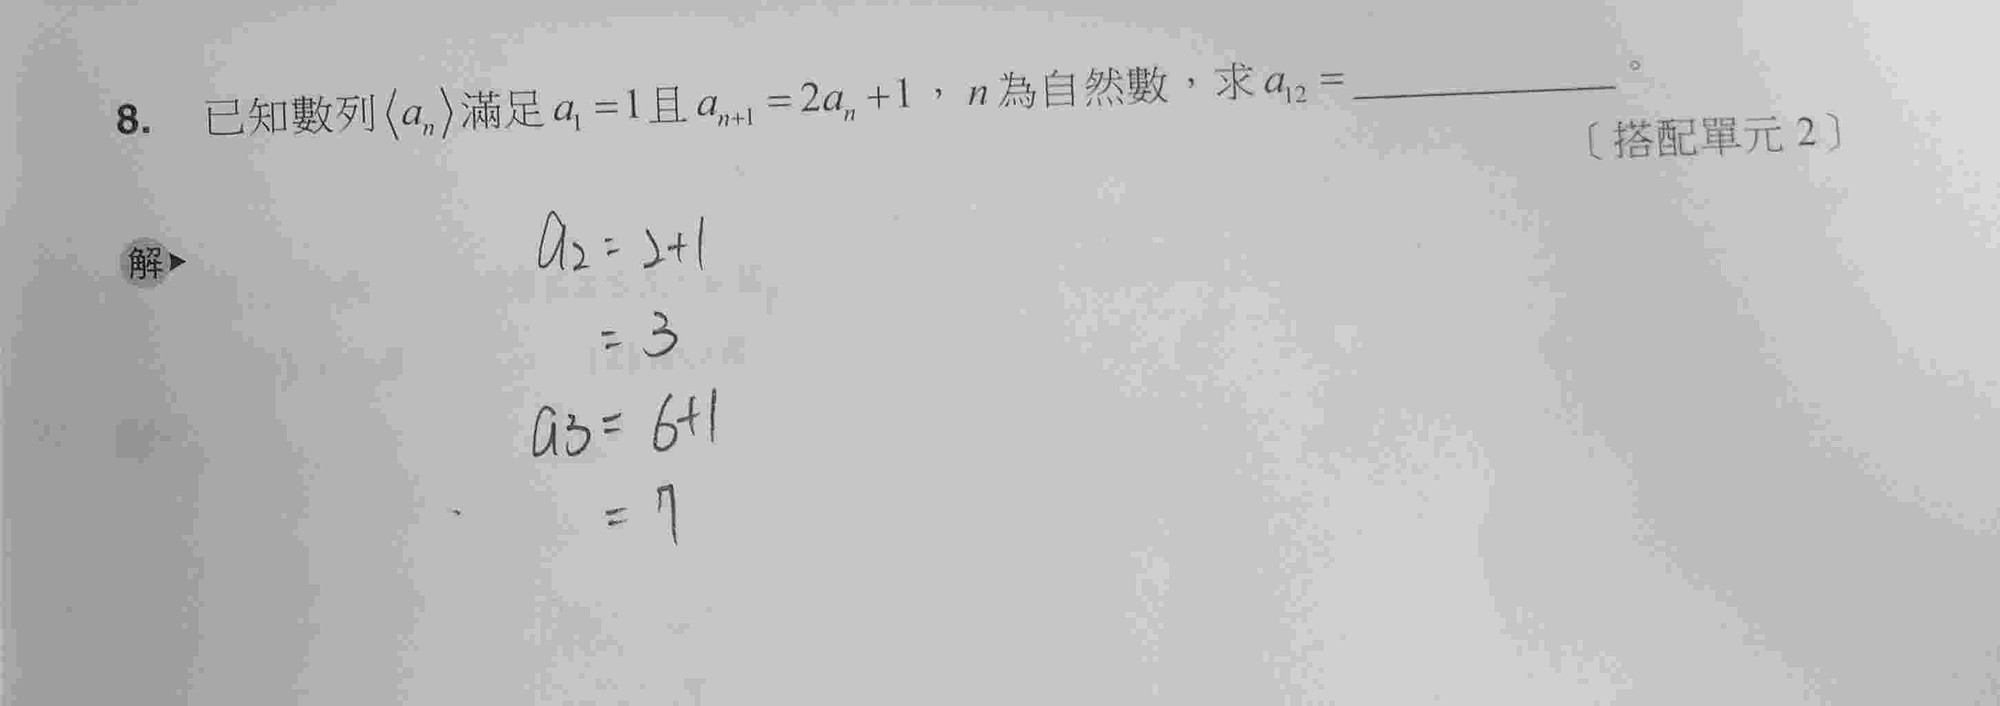 8. 已知數列⟨aₙ⟩滿足 a₁ = 1 且 aₙ₊₁ = 2aₙ + 1，n 為自然數，求 a₁₂ = ________。
〔搭配單元 2〕
解▶
a₂ = 2+1
= 3
a₃ = 6+1
= 7